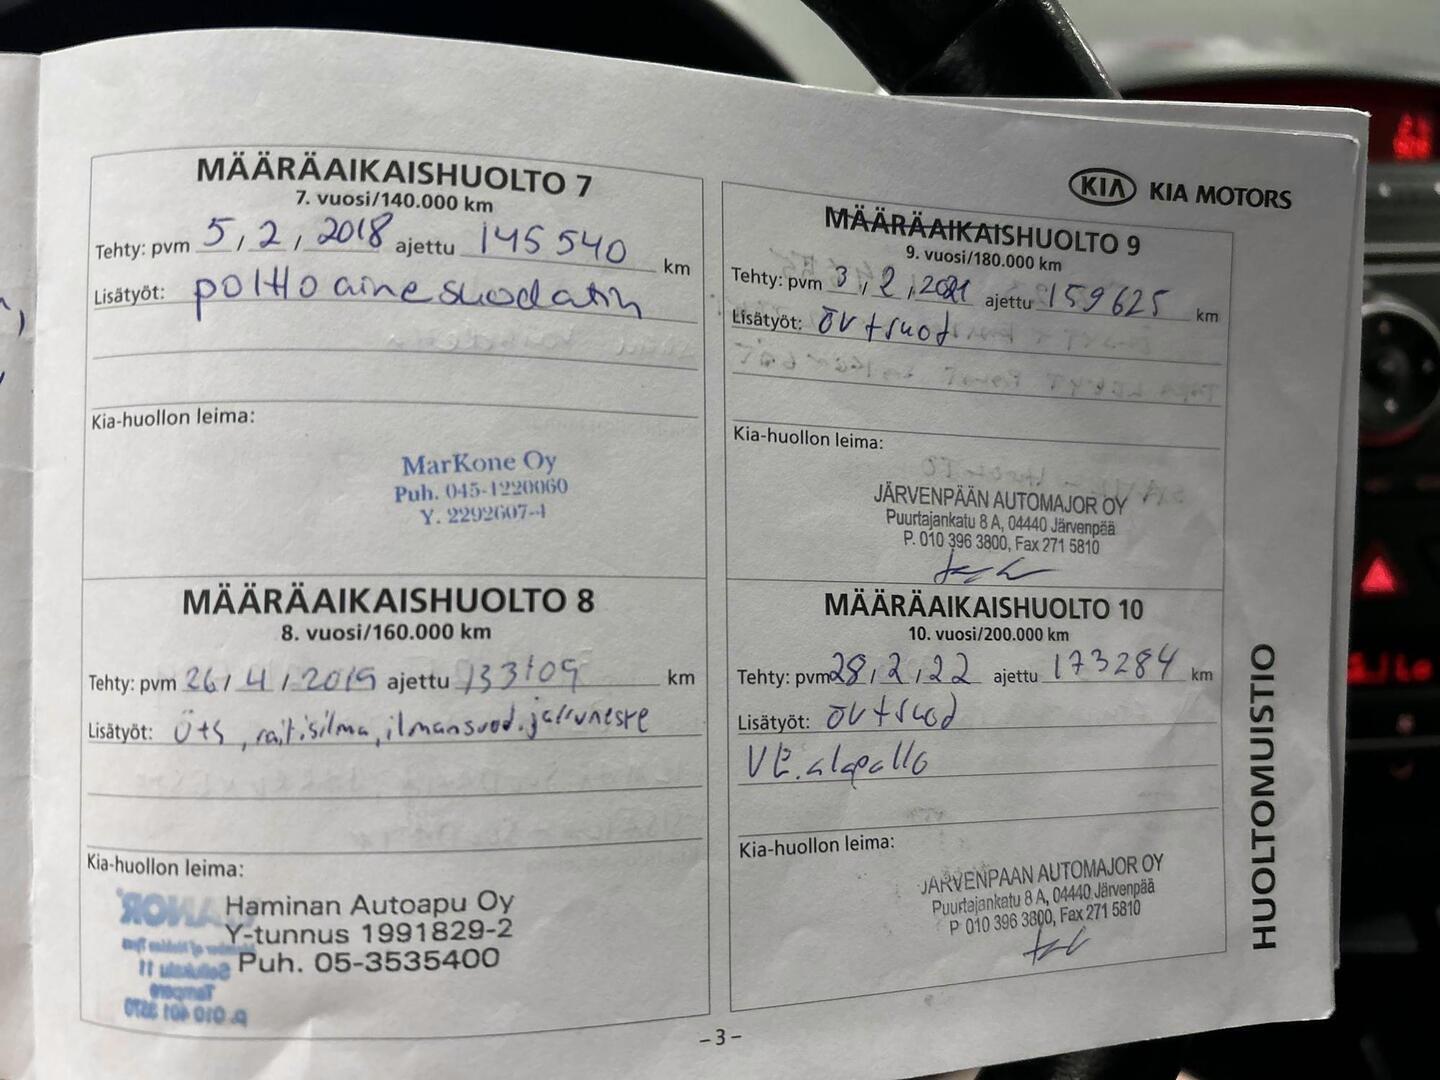 MÄÄRÄAIKAISHUOLTO 7
7. vuosi/140.000 km
Tehty: pvm 5, 2, 2018 ajettu 145 540 km
Lisätyöt: polttoainesuodatin
Kia-huollon leima:
MarKone Oy
Puh. 045-1220060
Y. 2292607-4
MÄÄRÄAIKAISHUOLTO 8
8. vuosi/160.000 km
Tehty: pvm 26, 4, 2019 ajettu 153109 km
Lisätyöt: Ö+S, raitisilma, ilmansuod. jarruneste
Kia-huollon leima:
Haminan Autoapu Oy
Y-tunnus 1991829-2
Puh. 05-3535400
KIA KIA MOTORS
MÄÄRÄAIKAISHUOLTO 9
9. vuosi/180.000 km
Tehty: pvm 3, 2, 2021 ajettu 159625 km
Lisätyöt: öv+suod
Kia-huollon leima:
JÄRVENPÄÄN AUTOMAJOR OY
Puurtajankatu 8 A, 04440 Järvenpää
P. 010 396 3800, Fax 271 5810
MÄÄRÄAIKAISHUOLTO 10
10. vuosi/200.000 km
Tehty: pvm 28, 2, 22 ajettu 173284 km
Lisätyöt: öv+suod
VE. alapallo
Kia-huollon leima:
JÄRVENPÄÄN AUTOMAJOR OY
Puurtajankatu 8 A, 04440 Järvenpää
P. 010 396 3800, Fax 271 5810
HUOLTOMUISTIO
– 3 –